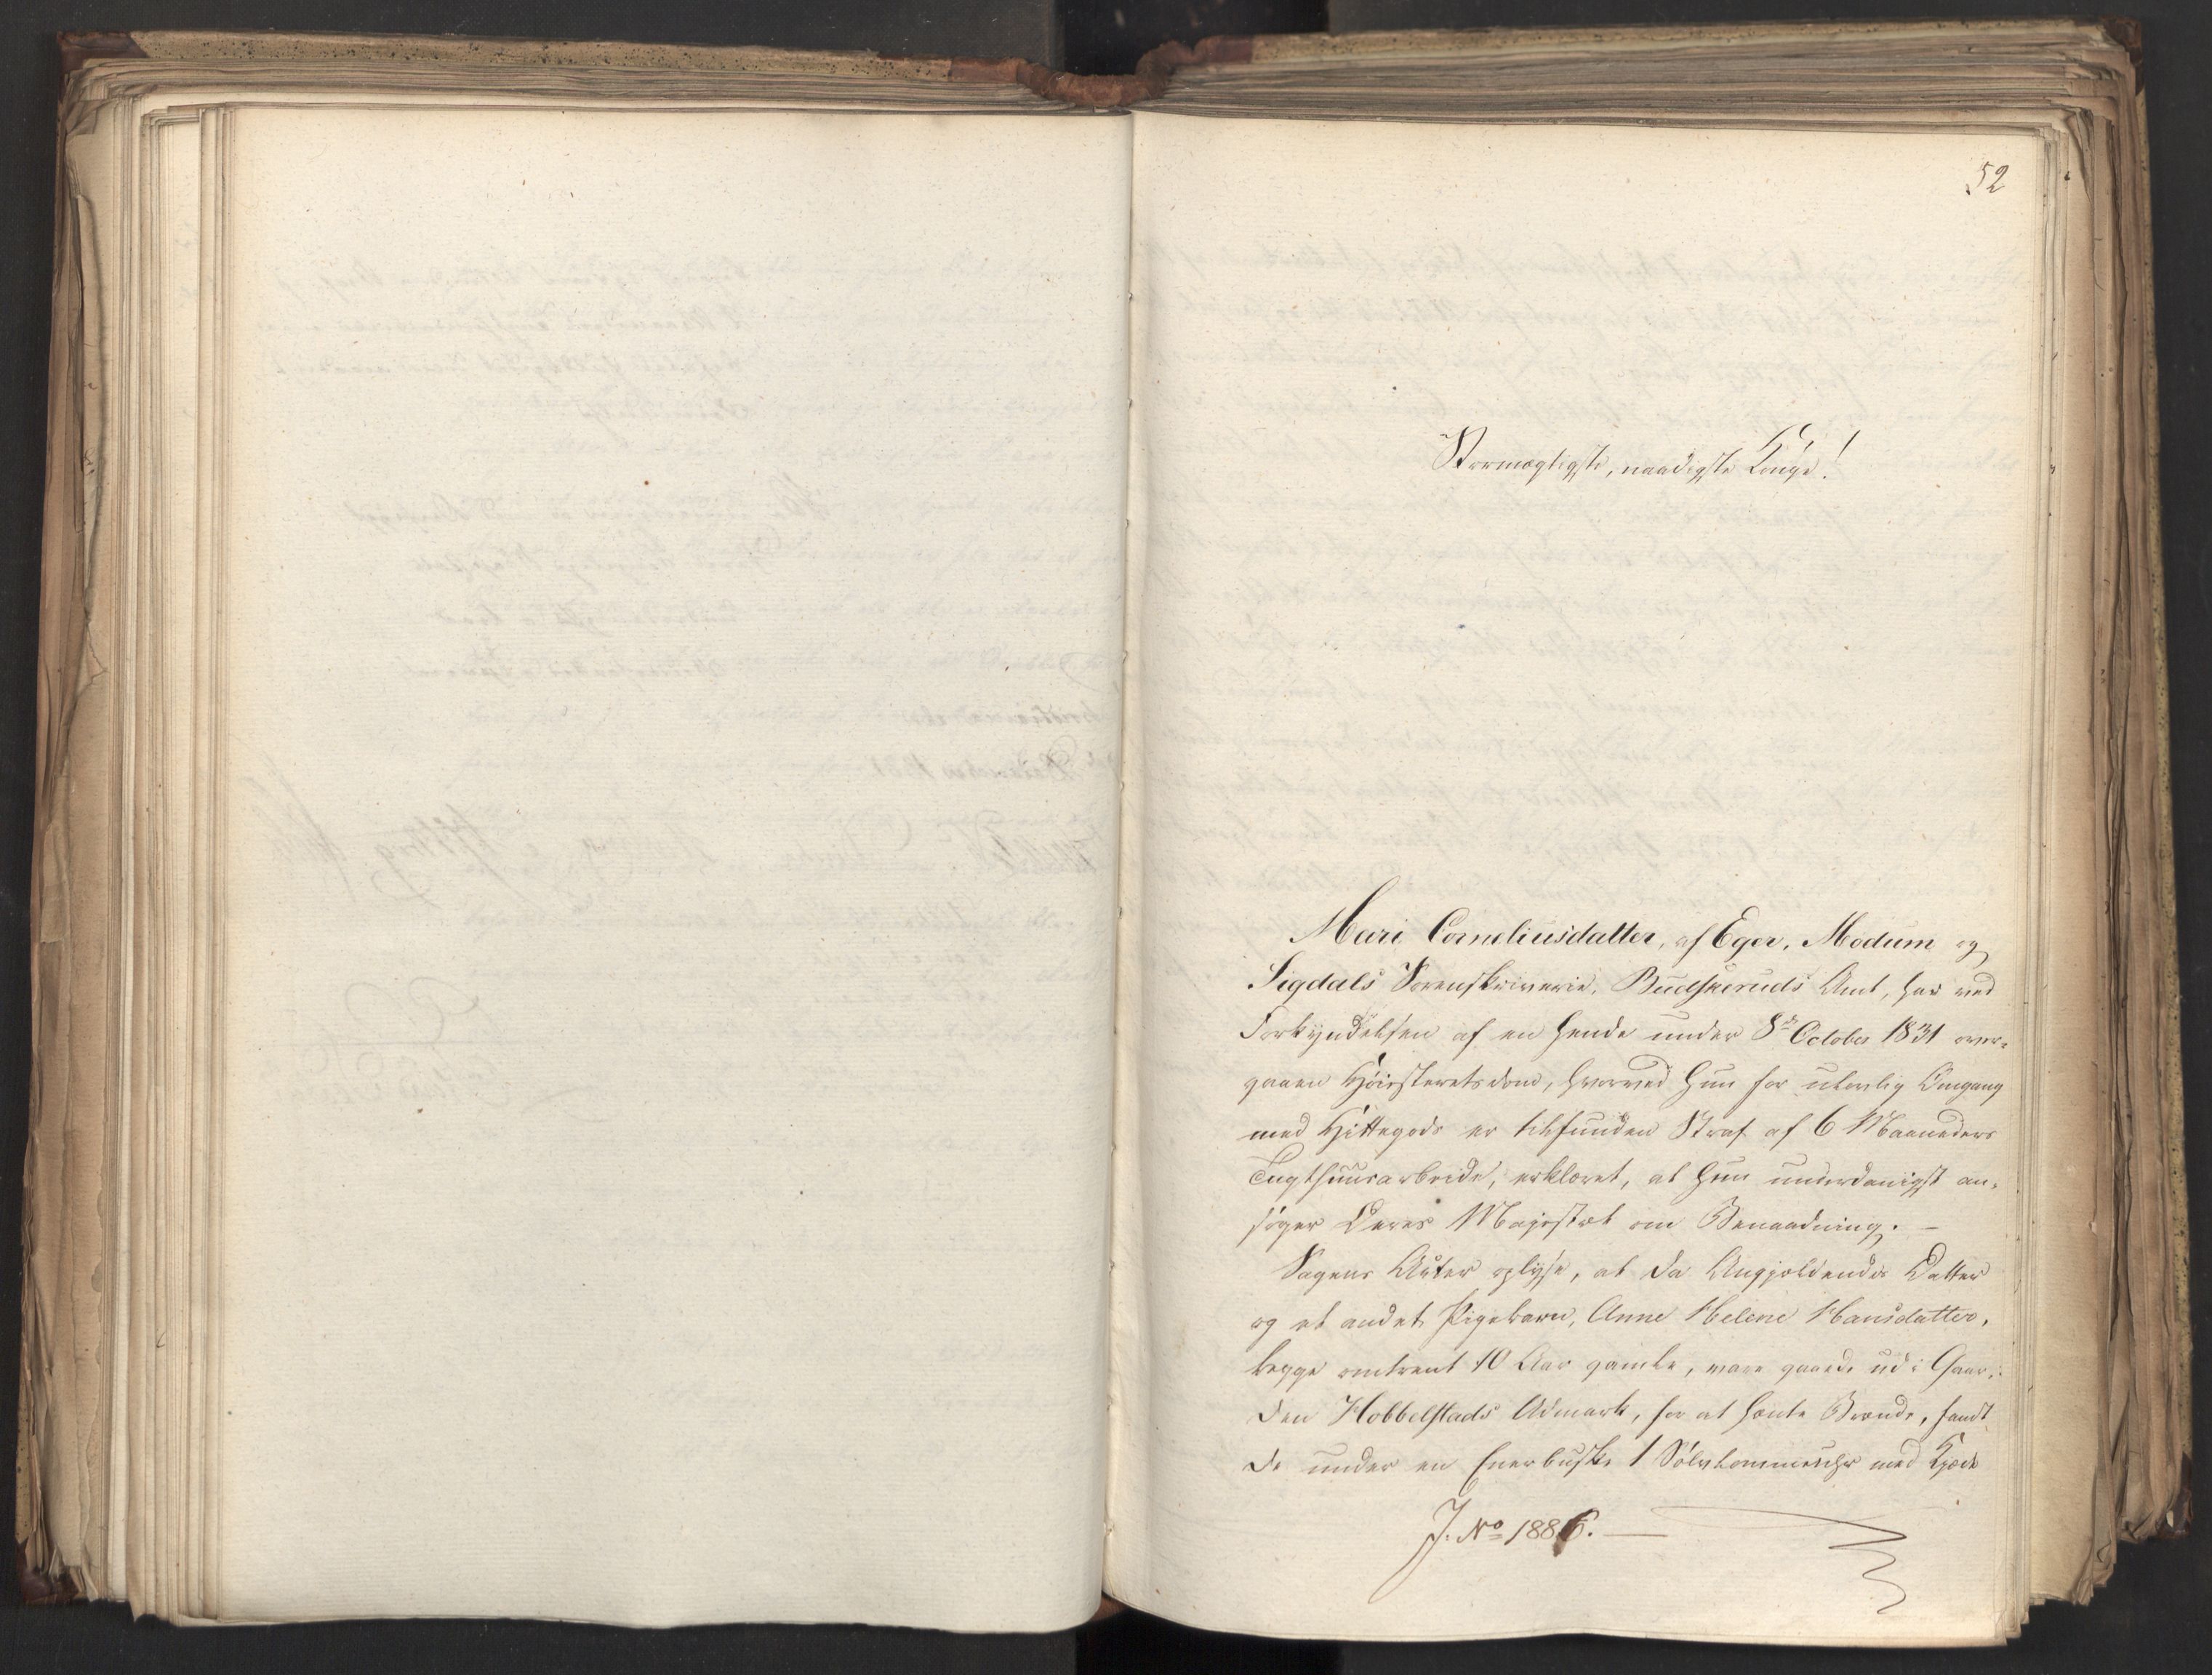 52
Stormægtigste, naadigste Konge!
Mari Corneliusdatter, af Eger, Modum og
Sigdals Sorenskriverie, Budskeruds Amt, har ved
Forkyndelsen af en hende under 8de October 1831 over-
gaaen Høiesteretsdom, hvorved hun for ulovlig Omgang
med Hittegods er tilfunden Straf af 6 Maaneders
Tugthuusarbeide, erklæret, at hun underdanigst an-
søger Deres Majestæt om Benaadning. –
Sagens Akter oplyse, at da Angjældendes Datter
og et andet Pigebarn, Anne Helene Hansdatter,
begge omtrent 10 Aar gamle, vare gaaede ud i Gaar-
den Hobbelstads Udmark, for at hente Brænde, fandt
de under en Enerbuske 1 Sølvlommeuhr med Kjæde
J. No 1886. —